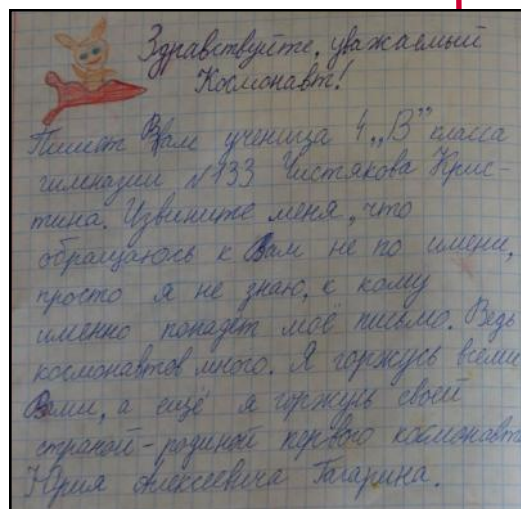 Здравствуйте, уважаемый
Космонавт!
Пишет Вам ученица 4 „В” класса
гимназии №133 Чистякова Крис-
тина. Извините меня, что
обращаюсь к Вам не по имени,
просто я не знаю, к кому
именно попадёт моё письмо. Ведь
космонавтов много. Я горжусь всеми
Вами, а ещё я горжусь своей
страной - родиной первого космонавта
Юрия Алексеевича Гагарина.